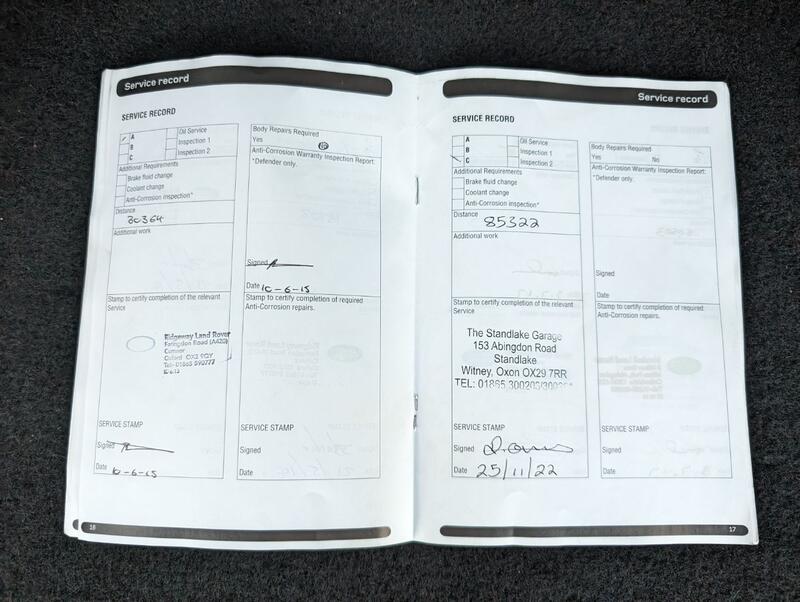 Service record
SERVICE RECORD
A
B
C
Oil Service
Inspection 1
Inspection 2
Additional Requirements
Brake fluid change
Coolant change
Anti-Corrosion inspection*
Distance
30364
Additional work
Stamp to certify completion of the relevant
Service
Ridgeway Land Rover
Faringdon Road (A420)
Cumnor
Oxford OX2 9QY
Tel- 01865
10.6.15
SERVICE STAMP
Signed
Date 10-6-15
16
Body Repairs Required
Yes
Anti-Corrosion Warranty Inspection Report:
*Defender only.
Signed
Date 10-6-15
Stamp to certify completion of required
Anti-Corrosion repairs.
SERVICE STAMP
Signed
Date
Service record
SERVICE RECORD
A
B
C
Oil Service
Inspection 1
Inspection 2
Additional Requirements
Brake fluid change
Coolant change
Anti-Corrosion inspection*
Distance
85322
Additional work
Stamp to certify completion of the relevant
Service
The Standlake Garage
153 Abingdon Road
Standlake
Witney, Oxon OX29 7RR
TEL: 01865 300203/300
SERVICE STAMP
Signed
Date 25/11/22
Body Repairs Required
Yes No
Anti-Corrosion Warranty Inspection Report:
*Defender only.
Signed
Date
Stamp to certify completion of required
Anti-Corrosion repairs.
SERVICE STAMP
Signed
Date
17